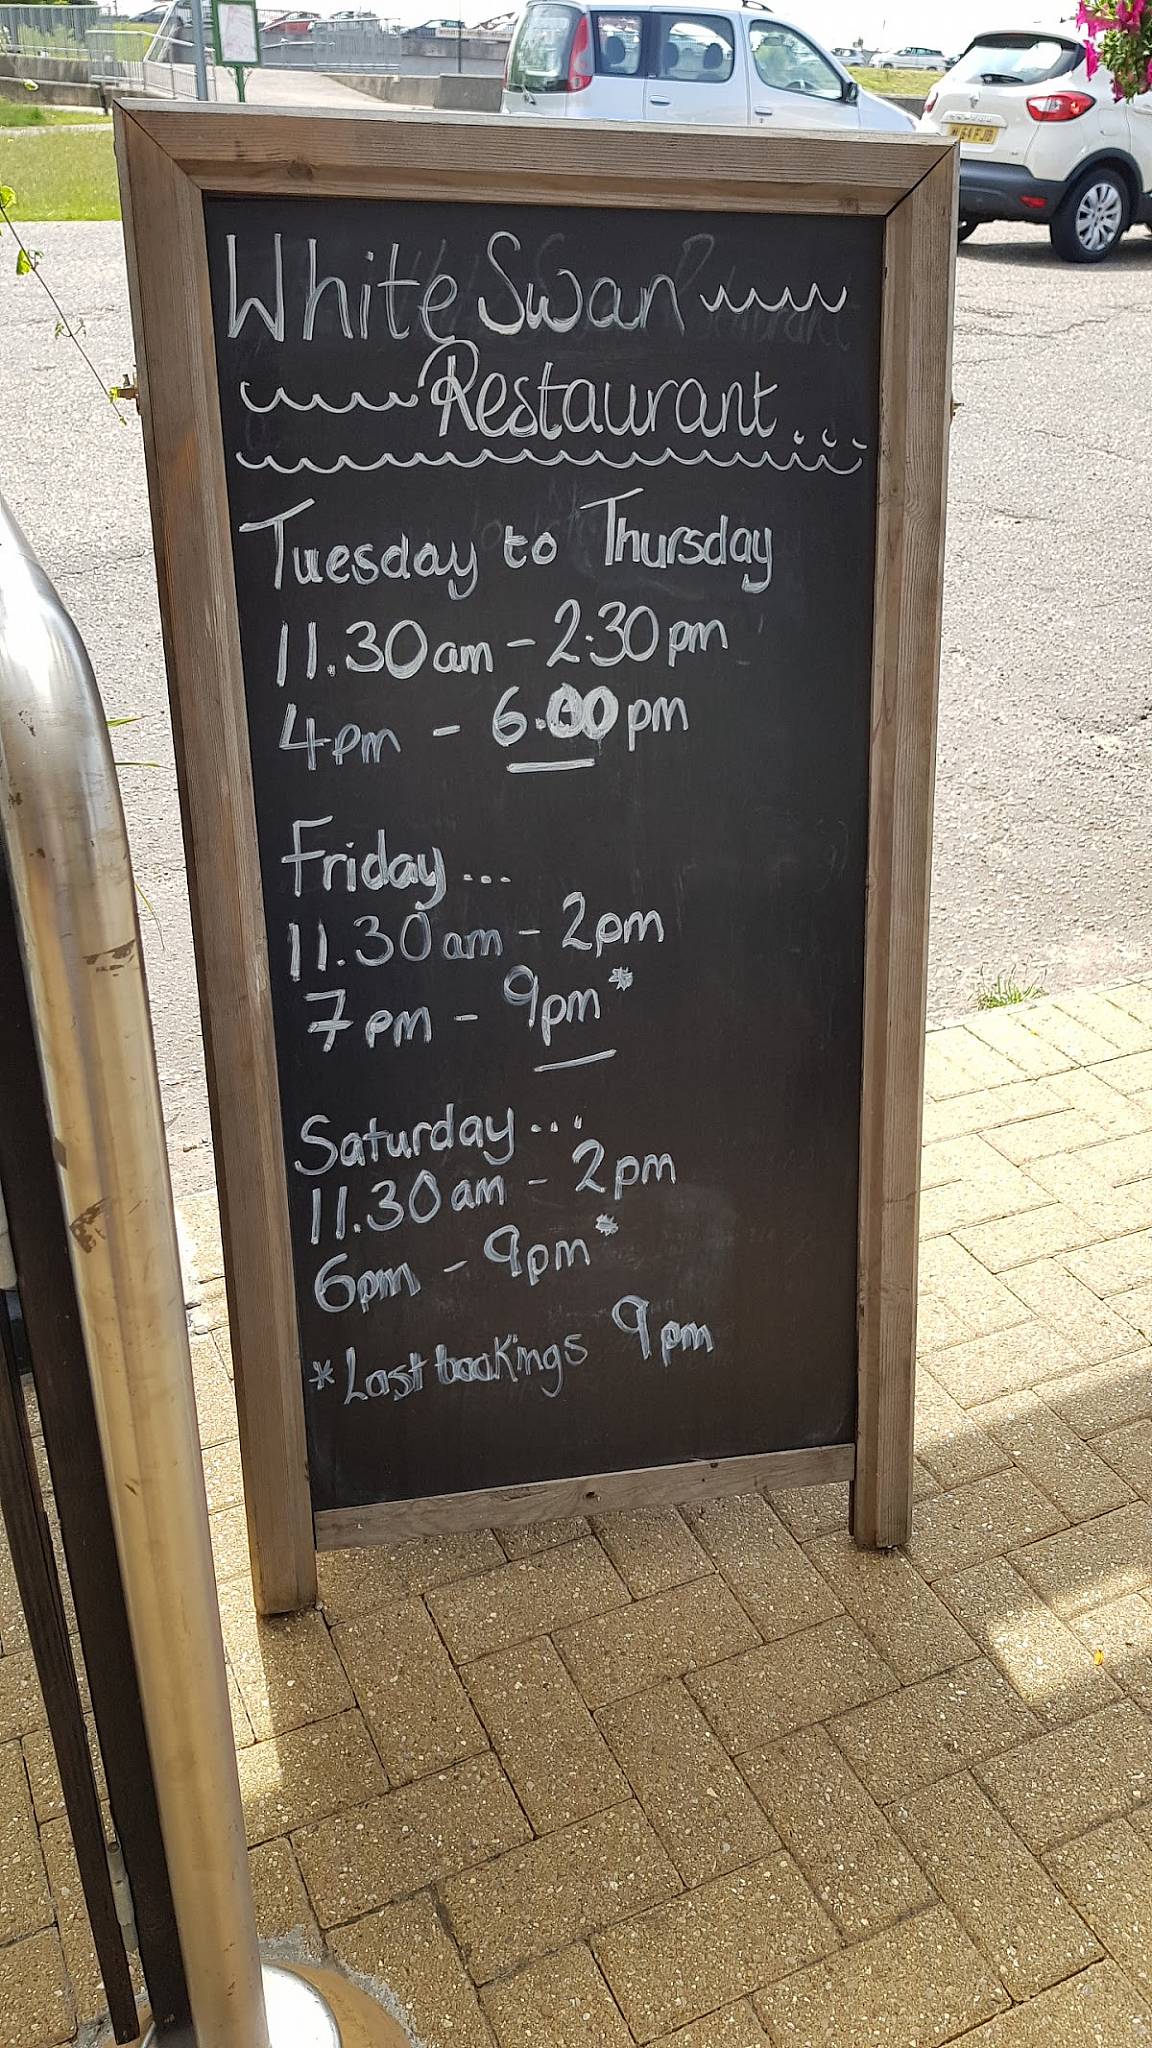 White Swan
Restaurant...
Tuesday to Thursday
11.30am - 2:30pm
4pm - 6.00pm
Friday...
11.30am - 2pm
7pm - 9pm*
Saturday...
11.30am - 2pm
6pm - 9pm*
*Last bookings 9pm